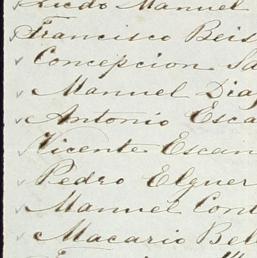 Manuel
Francisco Beis
Concepcion Sa
Manuel Diaz
Antonio Esca
Vicente Escan
Pedro Elguer
Manuel Cont
Macario Bel